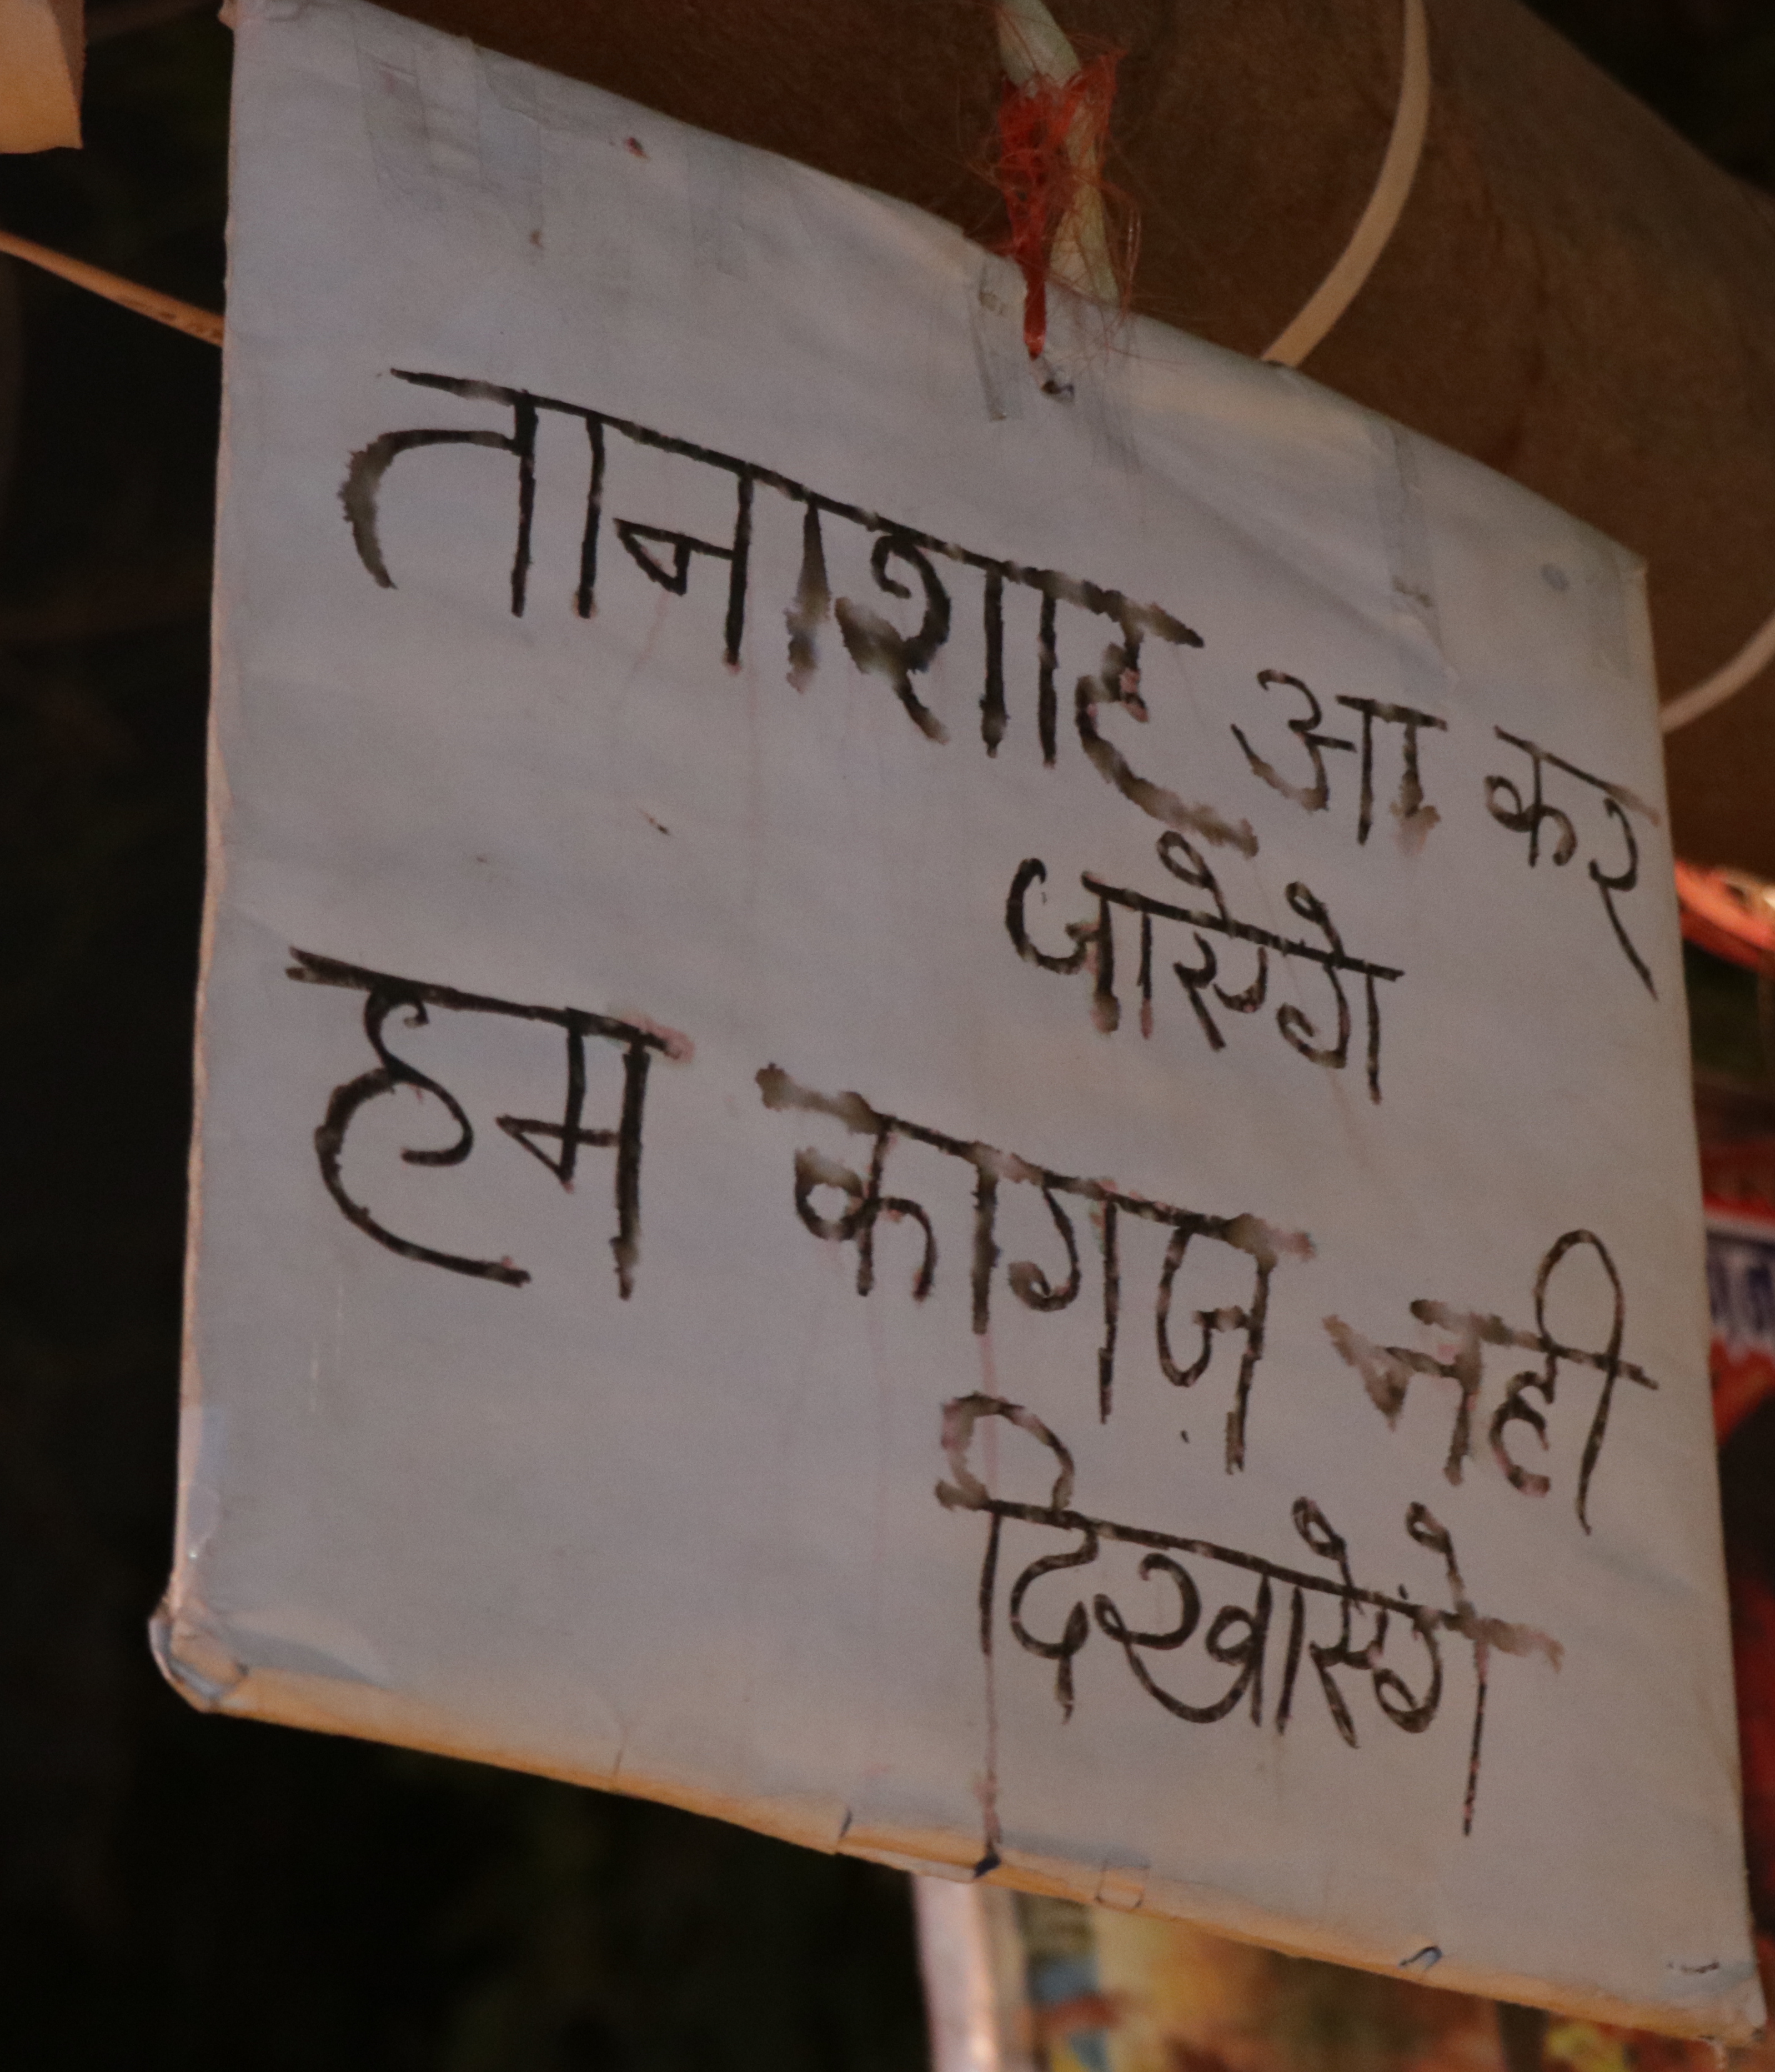 तानाशाह आ कर
जाऐगे
हम कागज़ नही
दिखाऐंगे